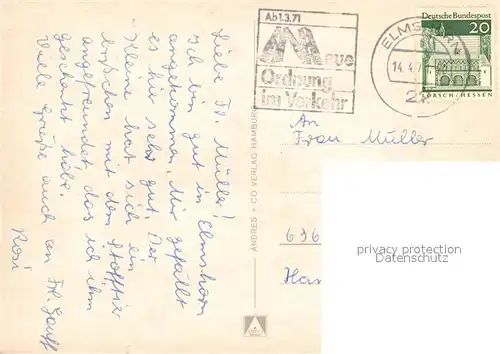 Liebe Fr. Müller!
Ich bin gut in Elmshorn
angekommen. Mir gefällt
es hier sehr gut. Der
Kleine hat sich ein
bißchen mit dem Stofftier
angefreundet, das ich ihm
geschenkt habe.
Viele Grüße auch an Frl.
Rosi
ANDRES + CO VERLAG HAMBURG
Ab 1.3.71
Neue
Ordnung
im Verkehr
ELMSHORN
14.4.7
2
Deutsche Bundespost
20
LORSCH/HESSEN
An
Frau Müller
636
Ha
privacy protection
Datenschutz